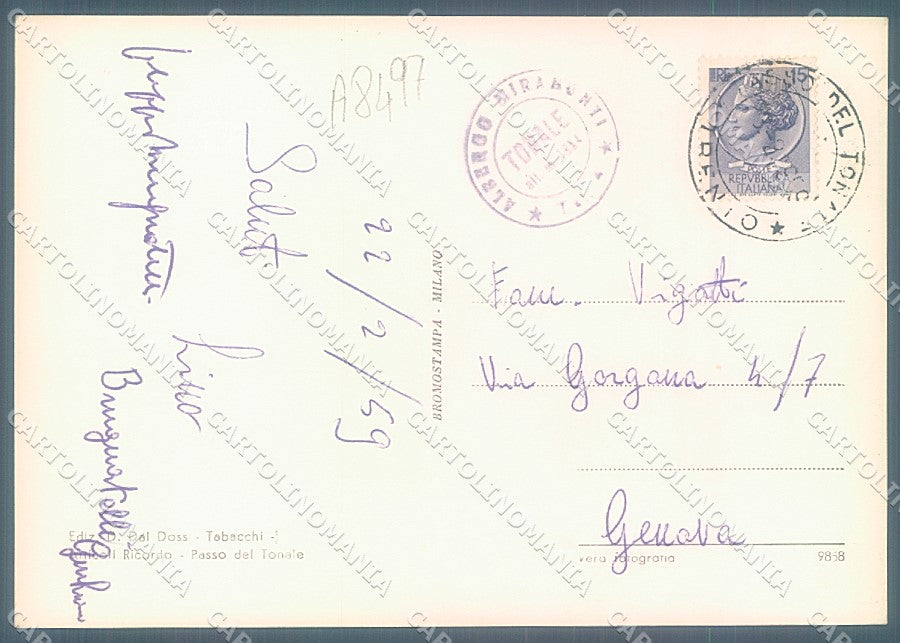 A8497
ALBERGO MIRAMONTI
TONALE
LIRE 15
REPVBBLICA
ITALIANA
DEL TONALE
TRENTINO
22/2/59
Saluti
Lino
Brugnatelli
Fam. Vigatti
Via Gorgona 4/7
Genova
BROMOSTAMPA - MILANO
Ediz. D. Dal Doss - Tabacchi -
Articoli Ricordo - Passo del Tonale
vera fotografia
9858
CARTOLINOMANIA